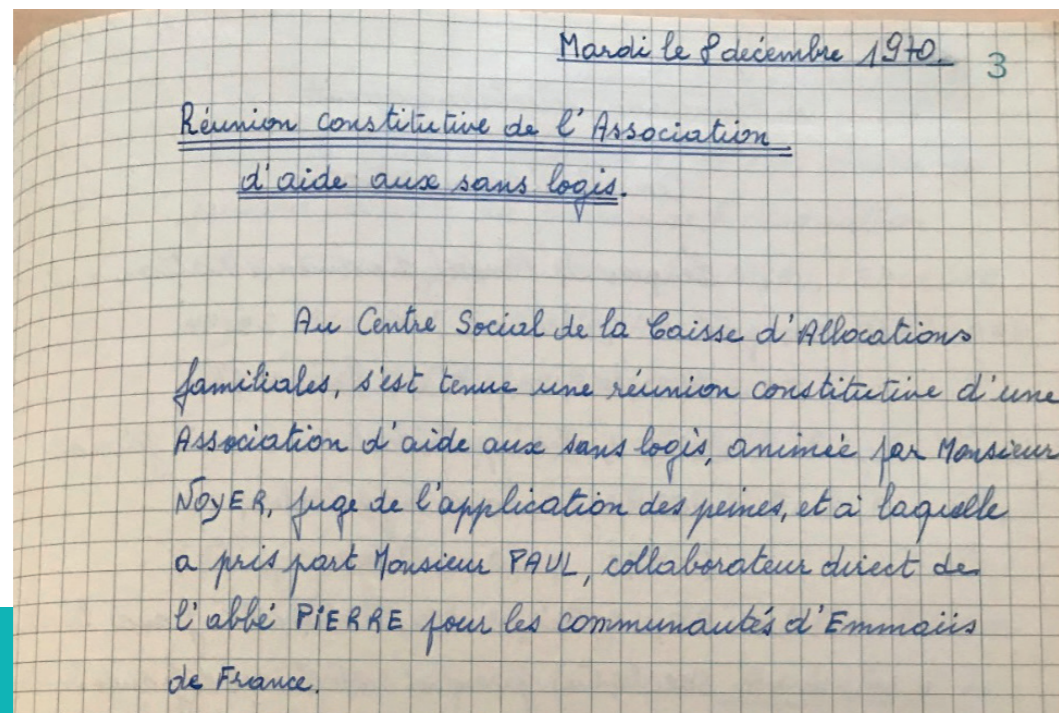 Mardi le 8 décembre 1970.
3
Réunion constitutive de l'Association
d'aide aux sans logis.
Au Centre Social de la Caisse d'Allocations
familiales, s'est tenue une réunion constitutive d'une
Association d'aide aux sans logis, animée par Monsieur
NOYER, juge de l'application des peines, et à laquelle
a pris part Monsieur PAUL, collaborateur direct de
l'abbé PIERRE pour les communautés d'Emmaüs
de France.